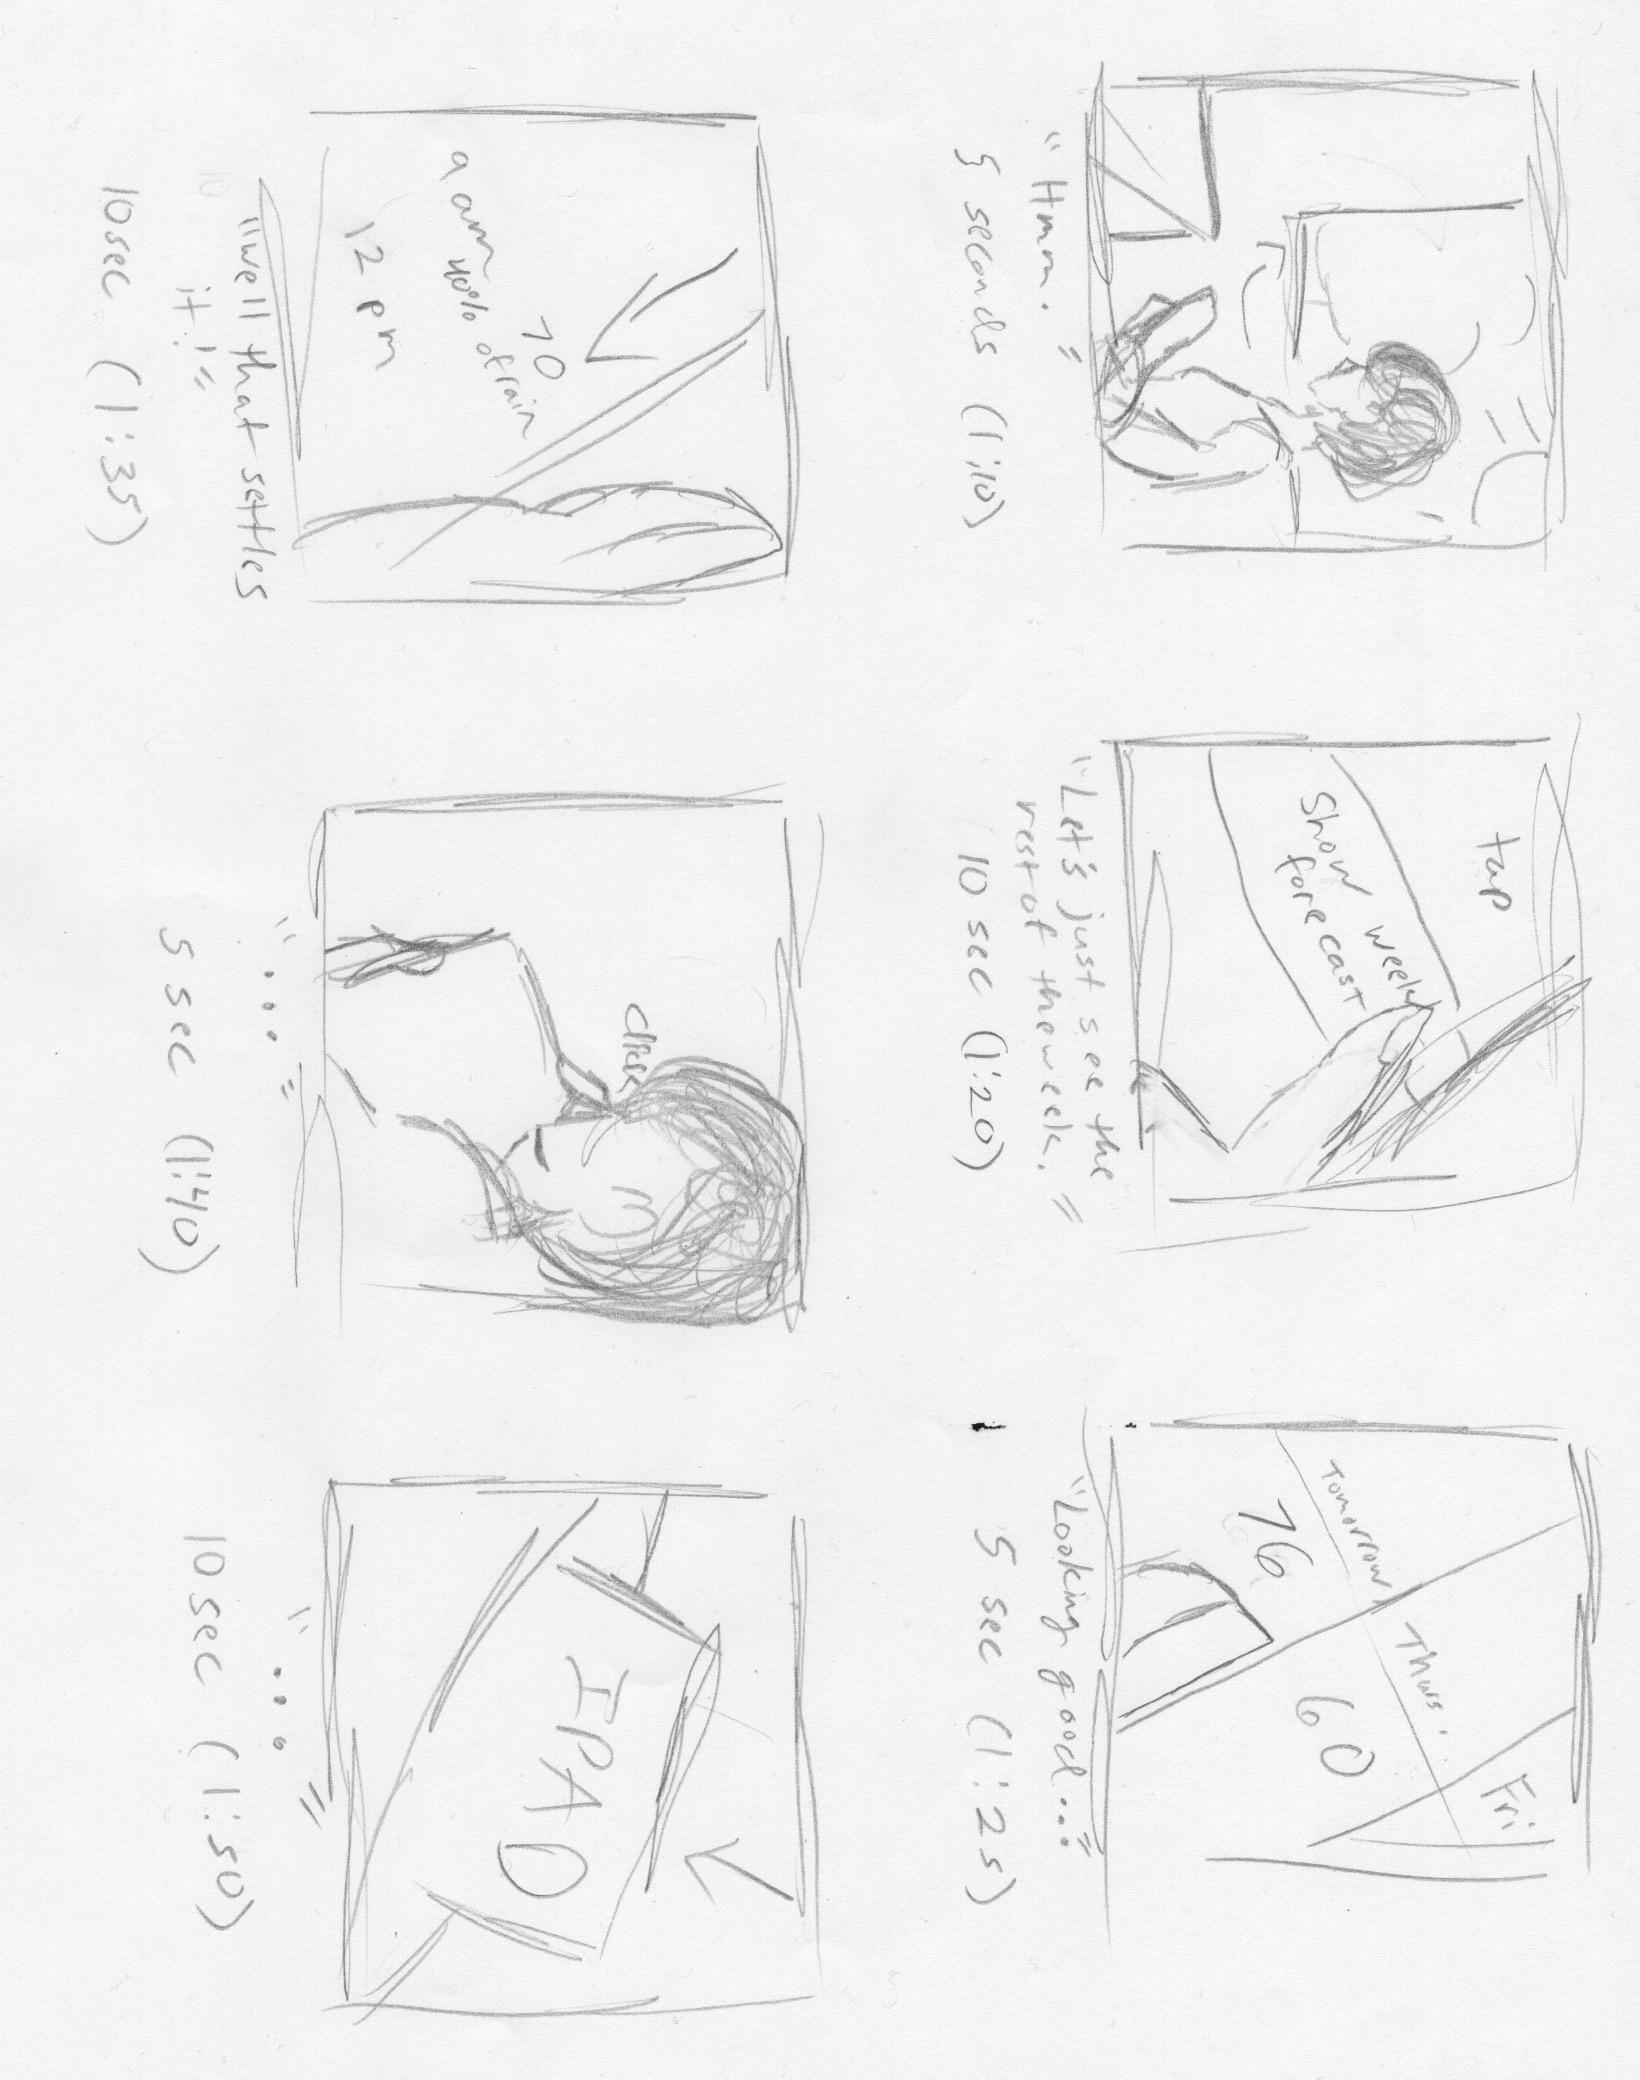 "Hmm."
5 seconds (1:10)
tap
Show week
forecast
"Let's just see the
rest of the week."
10 sec (1:20)
Tomorrow
Thurs.
Fri
76
60
"Looking good..."
5 sec (1:25)
70
40% of rain
12 pm
"well that settles
it!"
10sec (1:35)
"..."
5 sec (1:40)
IPAD
"..."
10sec (1:50)